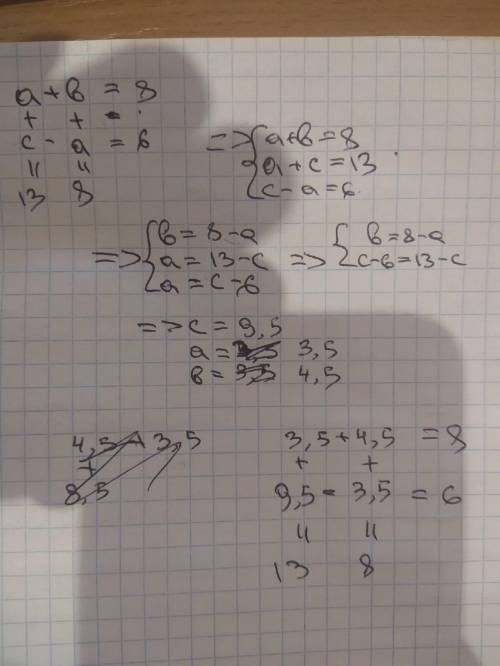 a + в = 8
+ +
c - a = 6
" "
13 8
=> { a+в=8
a+c=13
c-a=6
=> { в = 8-a
a = 13-c
a = c-6
=> { в=8-a
c-6=13-c
=> c = 9,5
a = 3,5
в = 4,5
4,5 + 3,5
+
8,5
3,5 + 4,5 = 8
+ +
9,5 - 3,5 = 6
" "
13 8